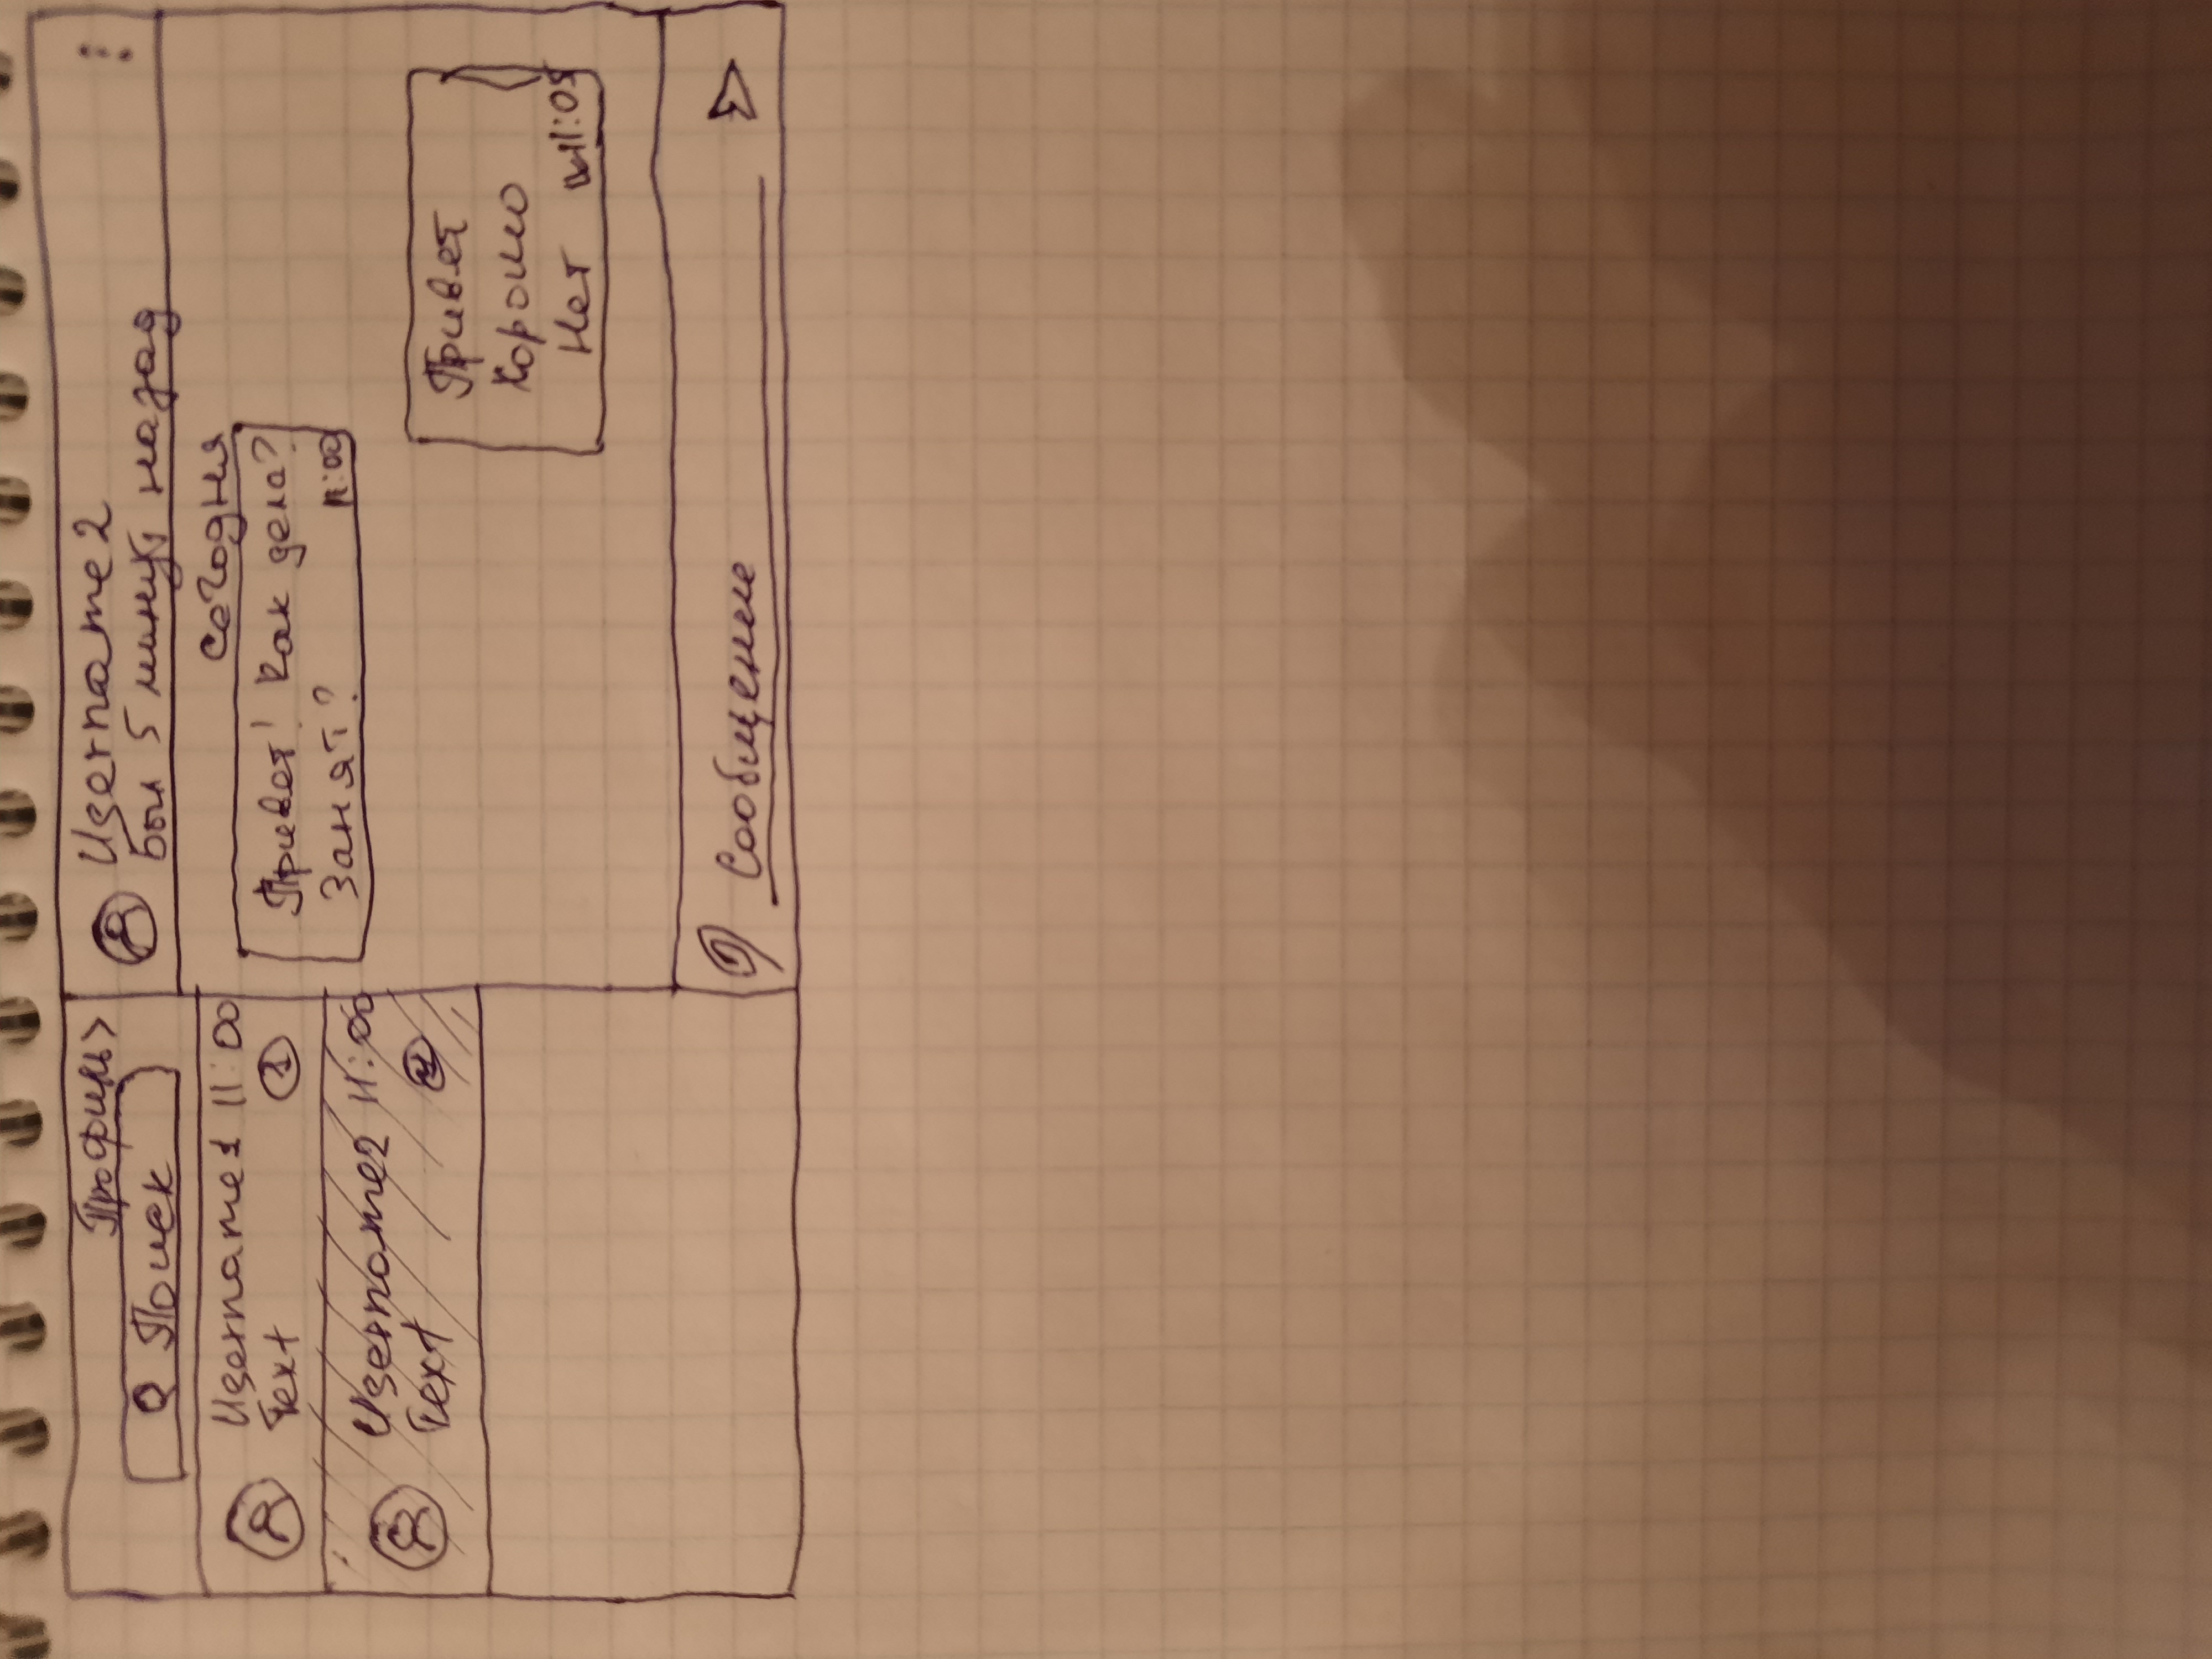 Профиль >
Поиск
Username1 11:00
Text 1
Username2 11:00
Text
Username2
Был 5 минут назад
Сегодня
Привет! Как дела?
Занят? 11:00
Привет
Хорошо
Нет 11:05
Сообщение